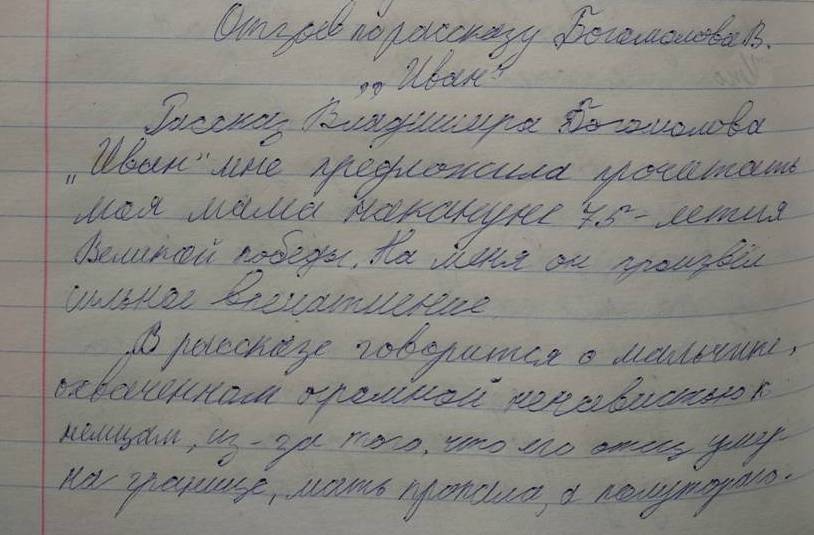 Отзыв по рассказу Богомолова В.
„Иван“
Рассказ Владимира Богомолова
„Иван“ мне предложила прочитать
моя мама накануне 75-летия
Великой победы. На меня он произвёл
сильное впечатление.
В рассказе говорится о мальчике,
охваченном огромной ненавистью к
немцам, из-за того, что его отец умер
на границе, мать пропала, а полуторго-